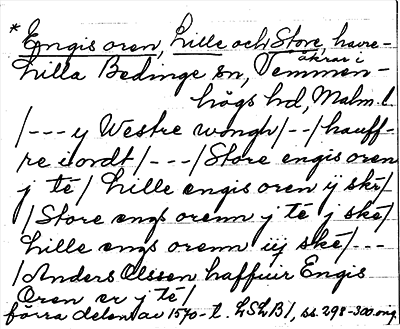 * Engis oren, Lille och Store, havre-
åkrar i
Lilla Bedinge sn, Vemmen-
högs hd, Malm. l.
/--- y Westre wongh/--/hauff-
re iordt/---/Store engis oren
j té/ Lille engis oren ÿ skě/
/Store engs orenn j té j ské/
Lille engs orenn iij ské/---
/Anders Olssen haffuir Engis
Oren er j té/
förra delen av 1570-t. LSLB1, ss. 298-300. orig.